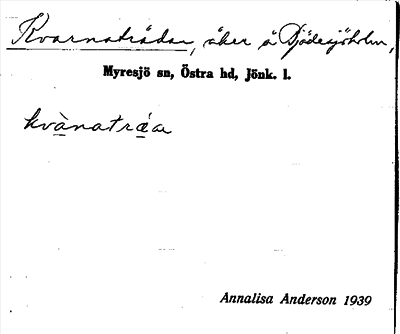 Kvarnatrådan, åker å Djödesjöholm,
Myresjö sn, Östra hd, Jönk. l.
kvànatráa
Annalisa Anderson 1939